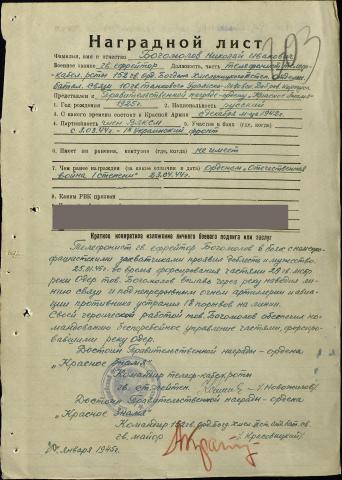 Наградной лист
Фамилия, имя и отчество Богомолов Николай Иванович
Военное звание гв. ефрейтор Должность, часть Телефонист телеф.
кабел. роты 152 гв. орд. Богдана Хмельницкого
батал. связи 10 гв. танкового Уральско-Львовск. Добров. корпуса
Представлен к Правительственной награде - ордену "Красное Знамя"
1. Год рождения 1925 г. 2. Национальность русский
4. С какого времени состоит в Красной Армии с 1942 г.
6. Партийность член ВЛКСМ 3. Участие в боях (где, когда)
с 3.03.44 г. - 1й Украинский фронт
6. Имеет ли ранения, контузии (где, когда) не имеет
7. Чем ранее награжден (за какие отличия и дата) орденом "Отечественная
война I степени" 23.04.44 г.
8. Каким РВК призван
Краткое конкретное изложение личного боевого подвига или заслуг
Телефонист гв. ефрейтор Богомолов в боях с немецко-
фашистскими захватчиками проявил доблесть и мужество.
25.01.45 г. во время форсирования частями 29 гв. мсбр
реки Одер тов. Богомолов вплавь через реку наводил ли-
нию связи и под непрерывным огнем артиллерии и авиа-
ции противника устранил 18 порывов на линии.
Своей героической работой тов. Богомолов обеспечил ко-
мандованию бесперебойное управление частями, форсиро-
вавшими реку Одер.
Достоин Правительственной награды - ордена
"Красное Знамя"
Командир телеф-кабел. роты
гв. ст. лейтен. /Новожилов/
Достоин Правительственной награды - ордена
"Красное Знамя"
Командир 152 гв. орд. Богд. Хм. отд. бат. св.
гв. майор /Кресовицкий/
января 1945 г.